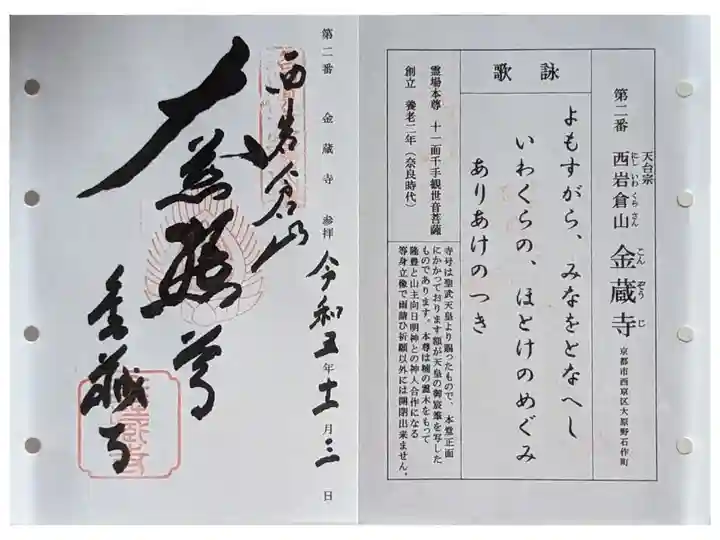 天台宗
第二番 西岩倉山 金蔵寺 京都市西京区大原野石作町
にし いわ くら さん こん ぞう じ
詠歌
よもすがら、みなをとなへし
いわくらの、ほとけのめぐみ
ありあけのつき
霊場本尊 十一面千手観世音菩薩
創立 養老二年(奈良時代)
寺号は聖武天皇より賜ったもので、本堂正面
にかかっております額が天皇の御宸筆を写した
ものであります。本尊は楠の霊木をもって
隆豊と山主向日明神との神人合作になる
等身立像で雨請ひ祈願以外には開閉出来ません。
第二番 金蔵寺 参拝 令和五年十一月三日
西岩倉山
金蔵寺